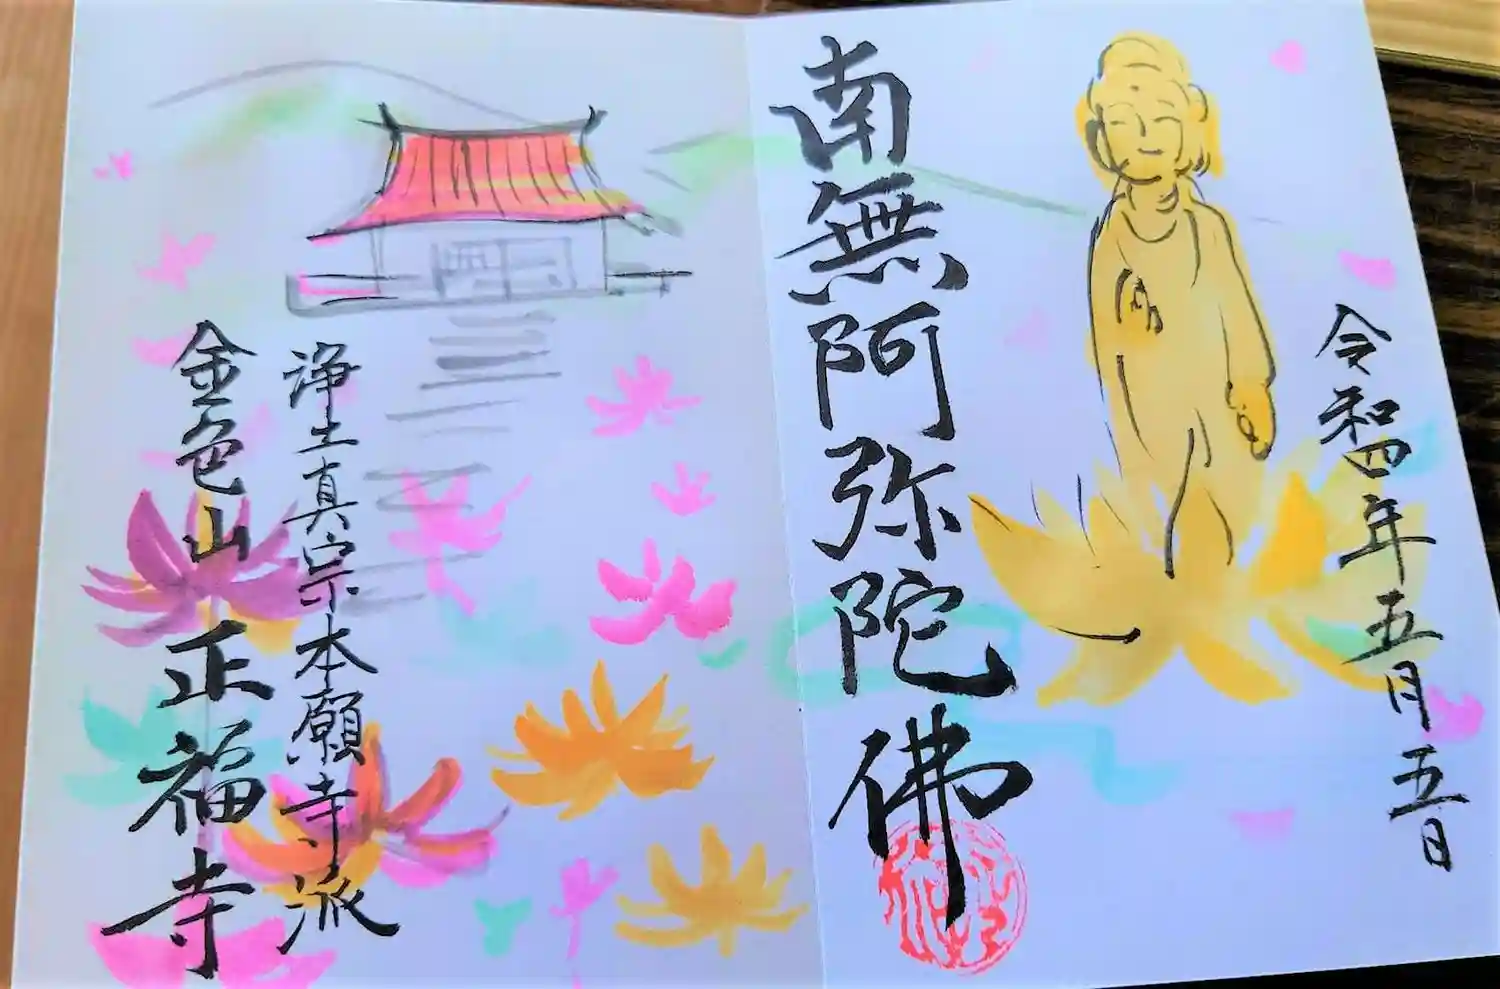 令和四年五月五日
南無阿弥陀佛
浄土真宗本願寺派
金色山 正福寺